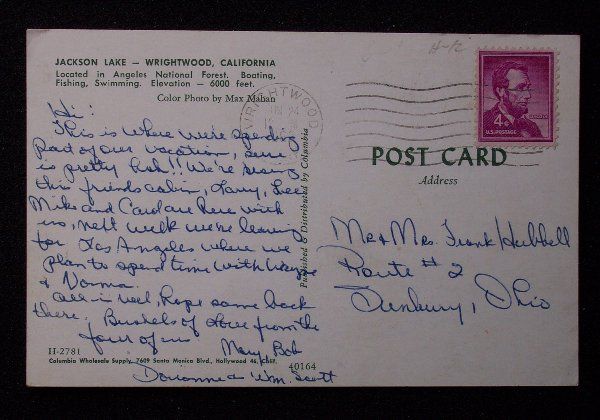 JACKSON LAKE – WRIGHTWOOD, CALIFORNIA
Located in Angeles National Forest. Boating,
Fishing, Swimming. Elevation – 6000 feet.
Color Photo by Max Mahan
Hi!
This is where we're spending
part of our vacation, sure
is pretty huh!! We're using
this friends cabin, Larry, Lee,
Mike and Carol are here with
us, next week we're leaving
for Los Angeles where we
plan to spend time with Wayne
& Norma.
All is well, hope same back
there. Bushels of love from the
four of us
Mary, Bob
Wm. Scott
H-2781
Columbia Wholesale Supply, 7609 Santa Monica Blvd., Hollywood 46, Calif.
40164
Published & Distributed by Columbia
WRIGHTWOOD
24
4¢
U.S. POSTAGE
LINCOLN
POST CARD
Address
Mr & Mrs. Frank Hubbell
Route # 2
Sunbury, Ohio